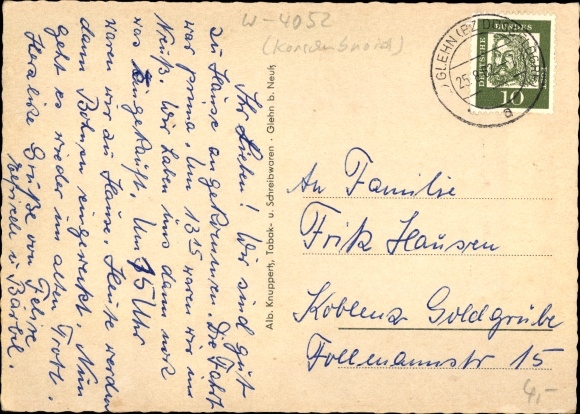 W-4052
(Korschenbroich)
Ihr Lieben! Wir sind gut
zu Hause angekommen. Die Fahrt
war prima. Um 13 15 waren wir in
Neuß. Wir haben uns dann noch
was eingekauft. Um 15 Uhr
waren wir zu Hause. Heute werden
dann Bohnen eingeweckt. Nun
geht es wieder im alten Trott.
Herzliche Grüße von
u Bärbel.
Alb. Knuppertz, Tabak- u. Schreibwaren · Glehn b. Neuß
GLEHN (BZ DÜSSELDORF)
25.
a
DEUTSCHE
BUNDES
POST
10
An Familie
Fritz Hausen
Koblenz Goldgrube
Follmannstr 15
4,-